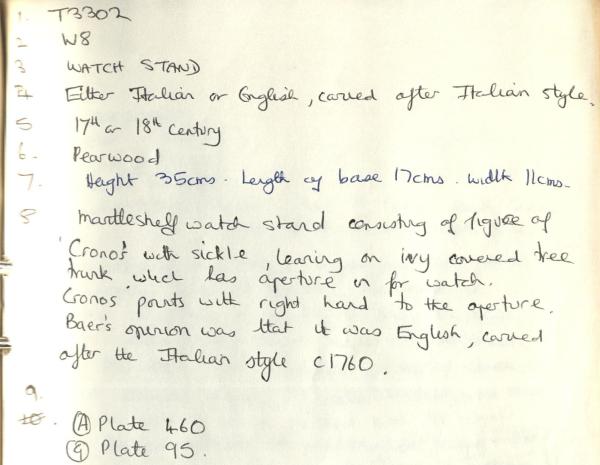 1. T3302
2 W8
3 WATCH STAND
4 Either Italian or English, carved after Italian style.
5 17th or 18th Century
6. Pearwood
7. Height 35cms. Length of base 17cms. width 11cms.
8 Mantleshelf watch stand consisting of figure of
'Cronos' with sickle, leaning on ivy covered tree
trunk which has aperture in for watch.
Cronos points with right hand to the aperture.
Baer's opinion was that it was English, carved
after the Italian style c1760.
9.
10.
(A) Plate 460
(9) Plate 95.